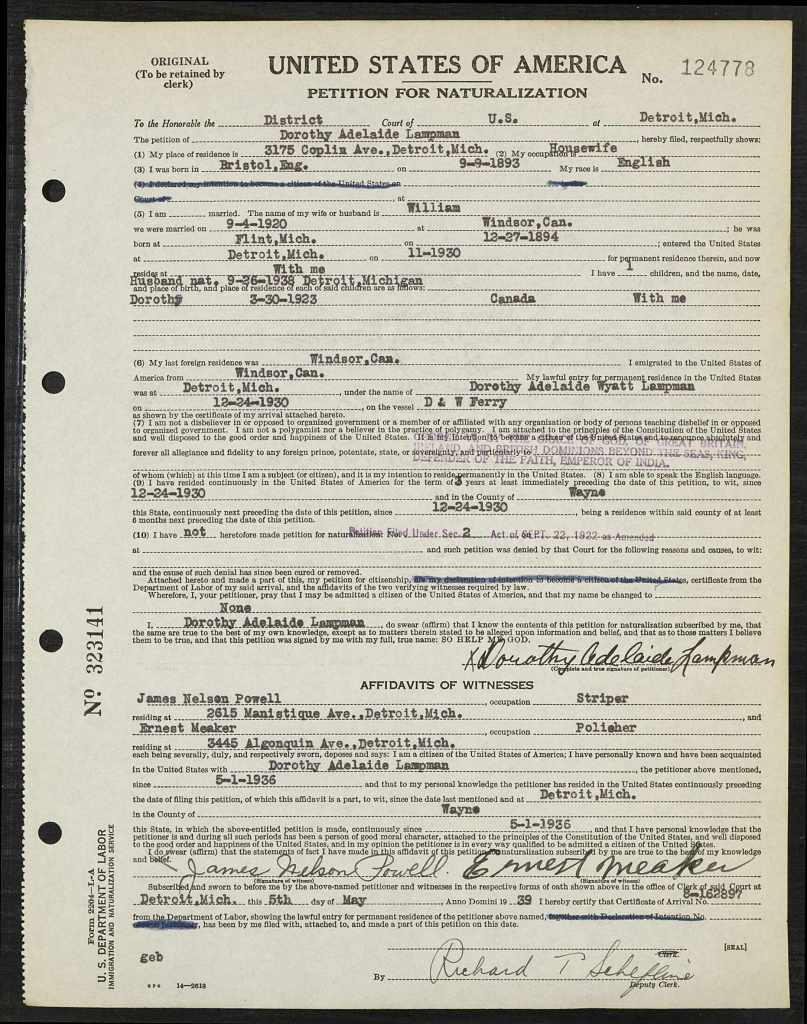 ORIGINAL
(To be retained by
clerk)
UNITED STATES OF AMERICA
PETITION FOR NATURALIZATION
No. 124778
To the Honorable the District Court of U.S. at Detroit,Mich.
The petition of Dorothy Adelaide Lampman, hereby filed, respectfully shows:
(1) My place of residence is 3175 Coplin Ave.,Detroit,Mich. (2) My occupation is Housewife
(3) I was born in Bristol,Eng. on 9-9-1893 My race is English
(4) I declared my intention to become a citizen of the United States on
Court of at
(5) I am married. The name of my wife or husband is William
we were married on 9-4-1920 at Windsor,Can. ; he was
born at Flint,Mich. on 12-27-1894 ; entered the United States
at Detroit,Mich. on 11-1930 for permanent residence therein, and now
resides at With me I have 1 children, and the name, date,
Husband nat. 9-26-1938 Detroit,Michigan
and place of birth, and place of residence of each of said children are as follows:
Dorothy 3-30-1923 Canada With me
(6) My last foreign residence was Windsor,Can. I emigrated to the United States of
America from Windsor,Can. My lawful entry for permanent residence in the United States
was at Detroit,Mich. , under the name of Dorothy Adelaide Wyatt Lampman
on 12-24-1930 , on the vessel D & W Ferry
as shown by the certificate of my arrival attached hereto.
(7) I am not a disbeliever in or opposed to organized government or a member of or affiliated with any organization or body of persons teaching disbelief in or opposed
to organized government. I am not a polygamist nor a believer in the practice of polygamy. I am attached to the principles of the Constitution of the United States
and well disposed to the good order and happiness of the United States. It is my intention to become a citizen of the United States and to renounce absolutely and
forever all allegiance and fidelity to any foreign prince, potentate, state, or sovereignty, and particularly to
OF GREAT BRITAIN,
IRELAND AND BRITISH DOMINIONS BEYOND THE SEAS, KING,
DEFENDER OF THE FAITH, EMPEROR OF INDIA.
of whom (which) at this time I am a subject (or citizen), and it is my intention to reside permanently in the United States. (8) I am able to speak the English language.
(9) I have resided continuously in the United States of America for the term of 3 years at least immediately preceding the date of this petition, to wit, since
12-24-1930 and in the County of Wayne
this State, continuously next preceding the date of this petition, since 12-24-1930 , being a residence within said county of at least
6 months next preceding the date of this petition.
(10) I have not heretofore made petition for naturalization: No.
Petition Filed Under Sec. 2 Act of SEPT. 22, 1922 as Amended
at and such petition was denied by that Court for the following reasons and causes, to wit:
and the cause of such denial has since been cured or removed.
Attached hereto and made a part of this, my petition for citizenship, are my declaration of intention to become a citizen of the United States, certificate from the
Department of Labor of my said arrival, and the affidavits of the two verifying witnesses required by law.
Wherefore, I, your petitioner, pray that I may be admitted a citizen of the United States of America, and that my name be changed to
None
I, Dorothy Adelaide Lampman , do swear (affirm) that I know the contents of this petition for naturalization subscribed by me, that
the same are true to the best of my own knowledge, except as to matters therein stated to be alleged upon information and belief, and that as to those matters I believe
them to be true, and that this petition was signed by me with my full, true name: SO HELP ME GOD.
X Dorothy Adelaide Lampman
(Complete and true signature of petitioner)
AFFIDAVITS OF WITNESSES
James Nelson Powell , occupation Striper
residing at 2615 Manistique Ave.,Detroit,Mich. , and
Ernest Meaker , occupation Polisher
residing at 3445 Algonquin Ave.,Detroit,Mich.
each being severally, duly, and respectively sworn, deposes and says: I am a citizen of the United States of America; I have personally known and have been acquainted
in the United States with Dorothy Adelaide Lampman , the petitioner above mentioned,
since 5-1-1936 and that to my personal knowledge the petitioner has resided in the United States continuously preceding
the date of filing this petition, of which this affidavit is a part, to wit, since the date last mentioned and at Detroit,Mich.
in the County of Wayne
this State, in which the above-entitled petition is made, continuously since 5-1-1936 , and that I have personal knowledge that the
petitioner is and during all such periods has been a person of good moral character, attached to the principles of the Constitution of the United States, and well disposed
to the good order and happiness of the United States, and in my opinion the petitioner is in every way qualified to be admitted a citizen of the United States.
I do swear (affirm) that the statements of fact I have made in this affidavit of this petition for naturalization subscribed by me are true to the best of my knowledge
and belief.
James Nelson Powell. Ernest Meaker
(Signature of witness) (Signature of witness)
Subscribed and sworn to before me by the above-named petitioner and witnesses in the respective forms of oath shown above in the office of Clerk of said Court at
Detroit,Mich. this 5th day of May Anno Domini 1939 I hereby certify that Certificate of Arrival No. 8-162897
from the Department of Labor, showing the lawful entry for permanent residence of the petitioner above named, together with Declaration of Intention No.
, has been by me filed with, attached to, and made a part of this petition on this date.
Clerk.
[SEAL]
geb
By Richard T Schefline
Deputy Clerk.
GPO 14-2618
No 323141
Form 2204-L-A
U. S. DEPARTMENT OF LABOR
IMMIGRATION AND NATURALIZATION SERVICE